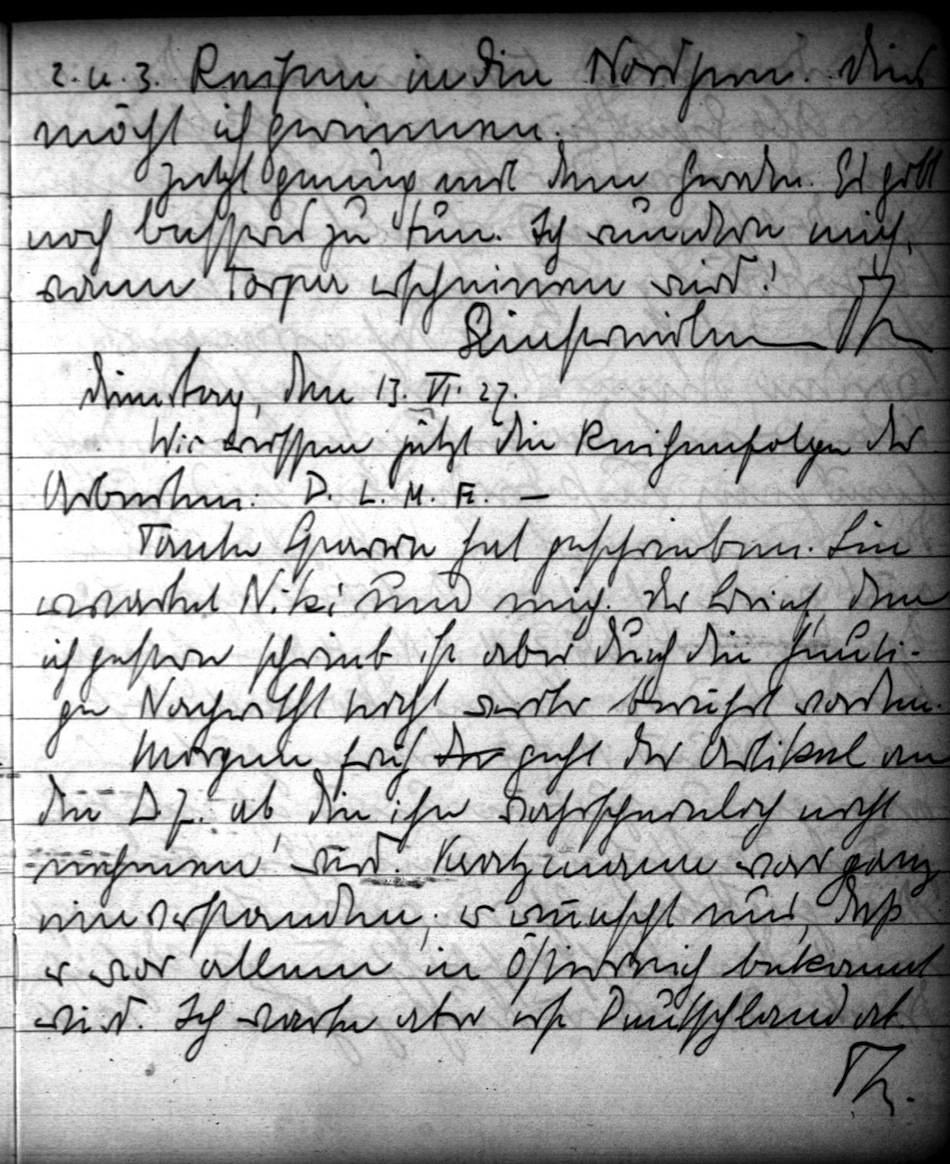 2. u. 3. Reihen in den Nordpen. Dies
möcht ich gewinnen.
Jetzt genug mit dem Han. Es gilt
noch besseres zu tun. Ich wundere mich,
wann Torper erscheinen wird!
Th
Dienstag, den 13. VI. 27.
Wir wissen jetzt die Reihenfolge der
Arbeiten: D. L. M. F. —
Tante Grawe hat geschrieben. Sie
erwartet Niki und mich. Der Brief, den
ich gestern schrieb ist aber durch die heuti-
ge Nachricht nicht weiter berührt worden.
Morgen früh geht der Artikel an
die D. Z. ab die ihn wahrscheinlich nicht
nehmen wird. Kratzmann war ganz
einverstanden; er wünscht nur, daß
er vor allem in Österreich bekannt
wird. Ich warte aber erst Deutschland ab.
Th.